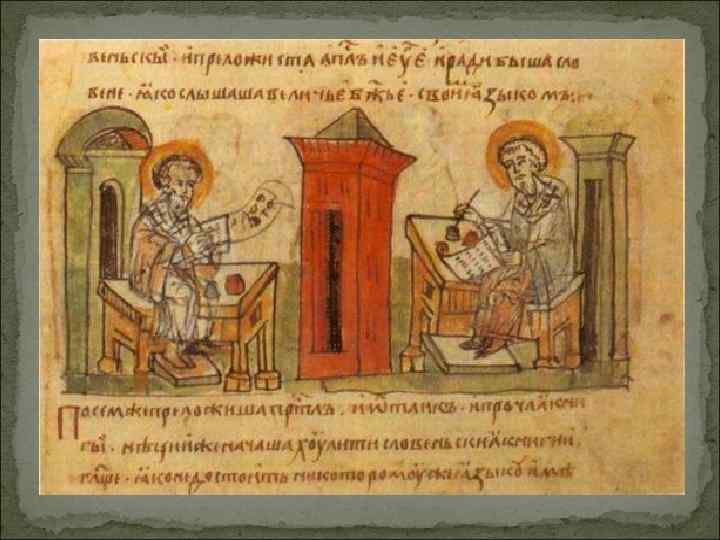 веньскыи · и преложиста ап҃лъ и еѵ҃е · и ради быша сло
вене · ꙗко слышаша величье б҃жье · своимъ ꙗзыкомъ :
Посемже преложиша п҃рⷭ҇тлъ · и ѡтаикъ · и прѡчаꙗ кни
гы · нѣции же начаша хоулити словеньскиꙗ книги
гл҃ще · ꙗко недостоить никоторомоуж ꙗзыкоу имѣ